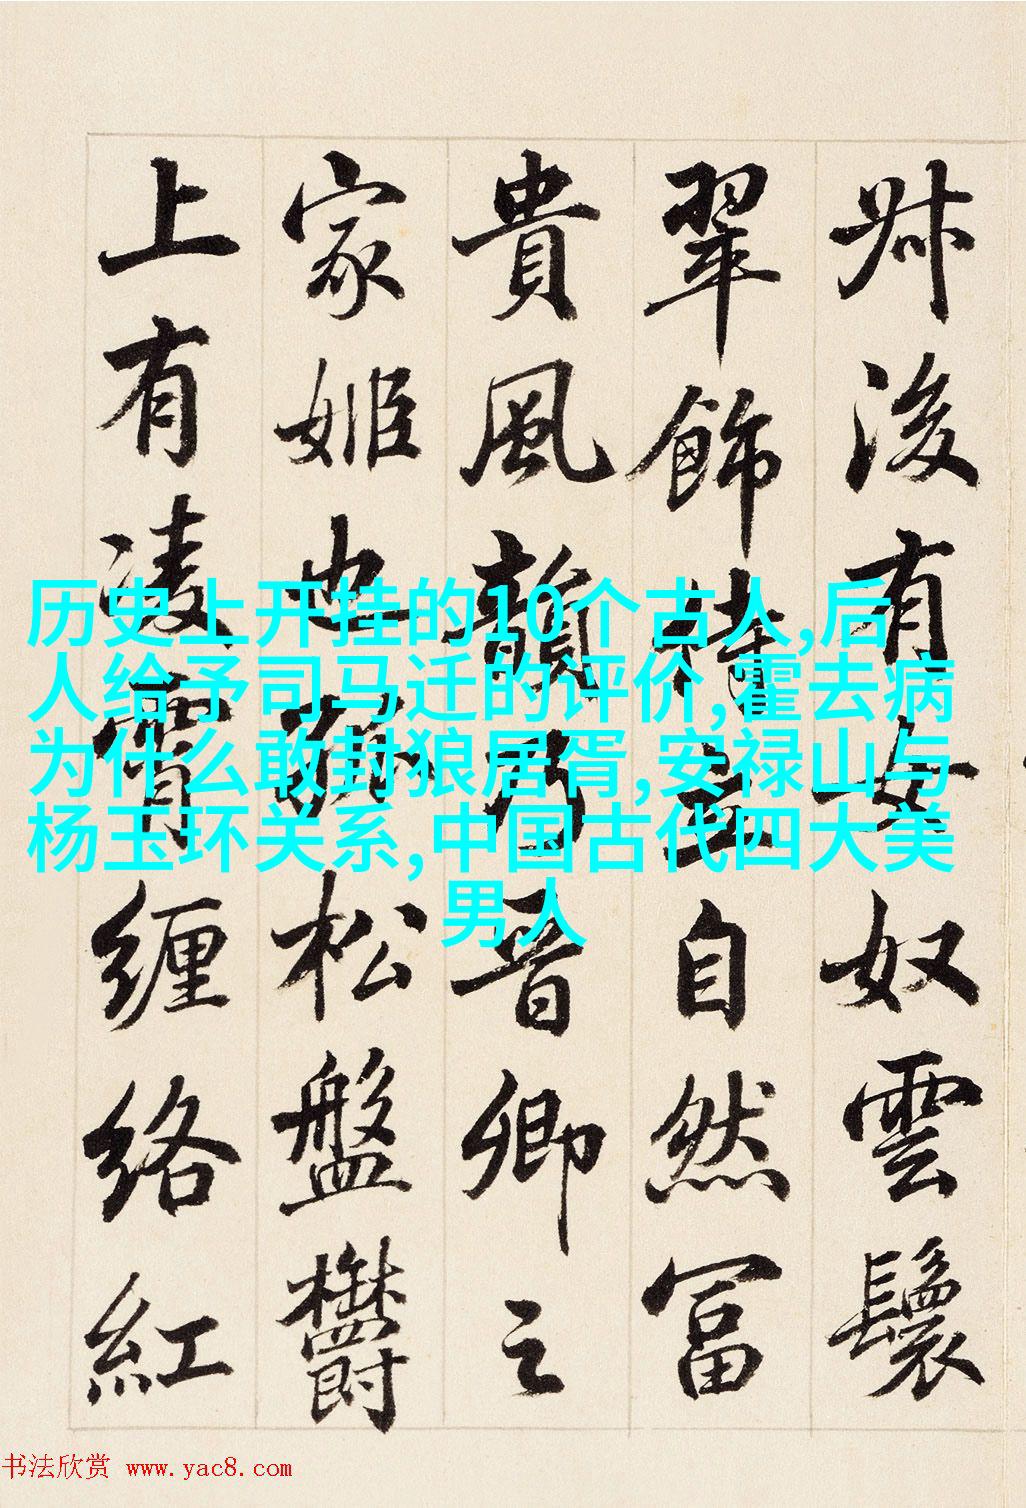 叔後有女奴雲鬟
翠飾侍立自然富
貴風韻乃晉卿之
家姬也孤松盤鬱
上有凌霄纏絡紅
历史上开挂的10个古人,后
人给予司马迁的评价,霍去病
为什么敢封狼居胥,安禄山与
杨玉环关系,中国古代四大美
男人
书法欣赏 www.yac8.com